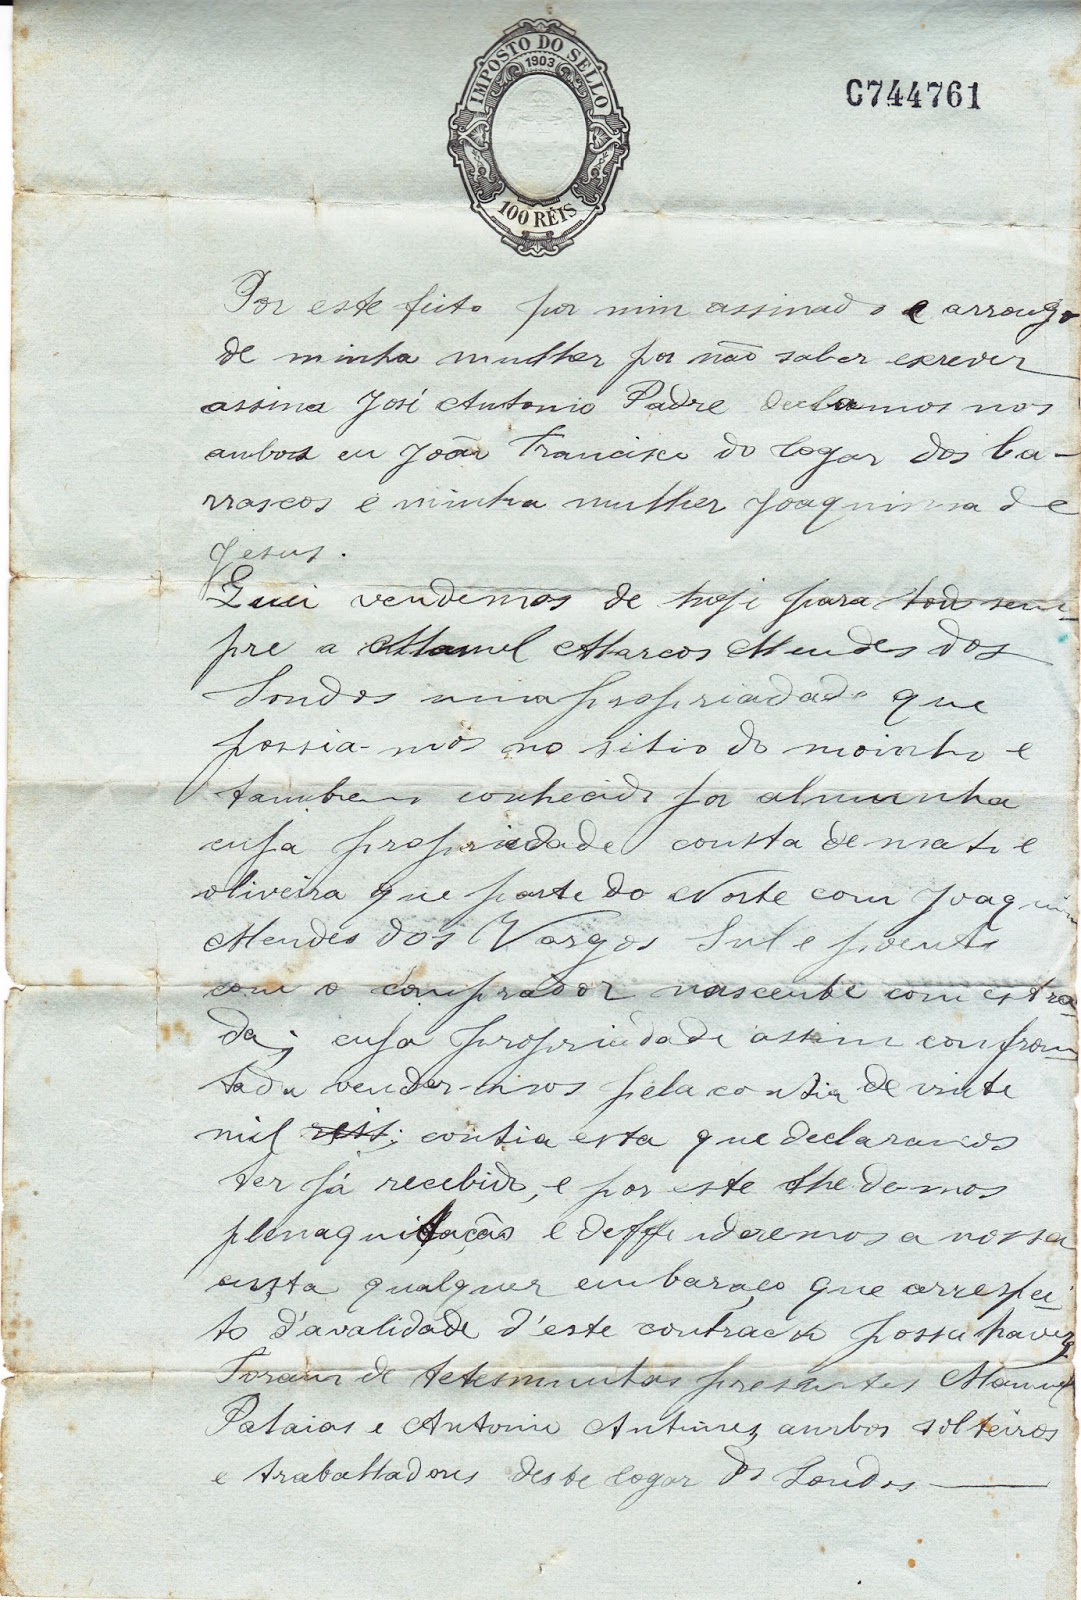 IMPOSTO DO SELLO
1903
100 RÉIS
C744761
Por este feito por mim assinado e arrougo
de minha mulher por não saber escrever
assina José Antonio Padre declaramos nos
ambos eu João Francisco do logar dos ba-
rrascos e minha mulher Joaquinna de
Jesus.
Quei vendemos de hoje para todo sem-
pre a Manuel Marcos Mendes dos
Soudos uma propriadade que
possia-mos no sitio do moinho e
tambem conhecido por almunha
cuja propriedade consta de mato e
oliveira que parte do Norte com Joaquim
Mendes dos Vargos Sul e poente
com o comprador nascente com estra-
da; cuja propriedade assim confron-
tada vender-mos pela contia de vinte
mil reis; contia esta que declaramos
ter já recebido, e por este lhe damos
plena quitação e deffenderemos a nossa
custa qualquer embaraço que arrespei-
to d'avalidade d'este contracto possa haver
Foram de tetesmunhas presentes Manuel
Pataias e Antonio Antunes, ambos solteiros
e trabalhadores deste logar dos Soudos